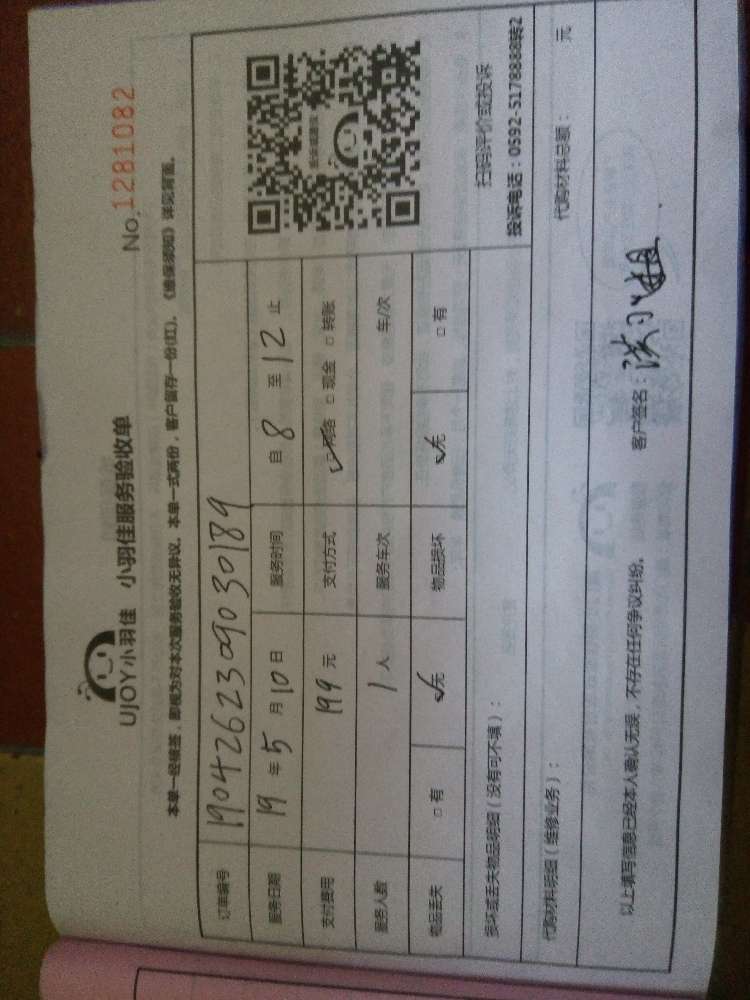 UJOY小羽佳 小羽佳服务验收单
No.1281082
本单一经接签，即视为对本次服务验收无异议。本单一式两份，客户留存一份(红)。《维保须知》详见背面。
订单编号 1904262309030189
服务日期 19年5月10日 服务时间 自8至12止
支付费用 199元 支付方式 ☑网络 □现金 □转账
服务人数 1人 服务车次 车/次
物品丢失 □有 ☑无 物品损坏 ☑无 □有
扫码评价或投诉
投诉电话：0592-5178888转2
损坏或丢失物品明细（没有可不填）：
代购材料明细（维修业务）： 代购材料总额： 元
以上填写信息已经本人确认无误，不存在任何争议纠纷。 客户签名：